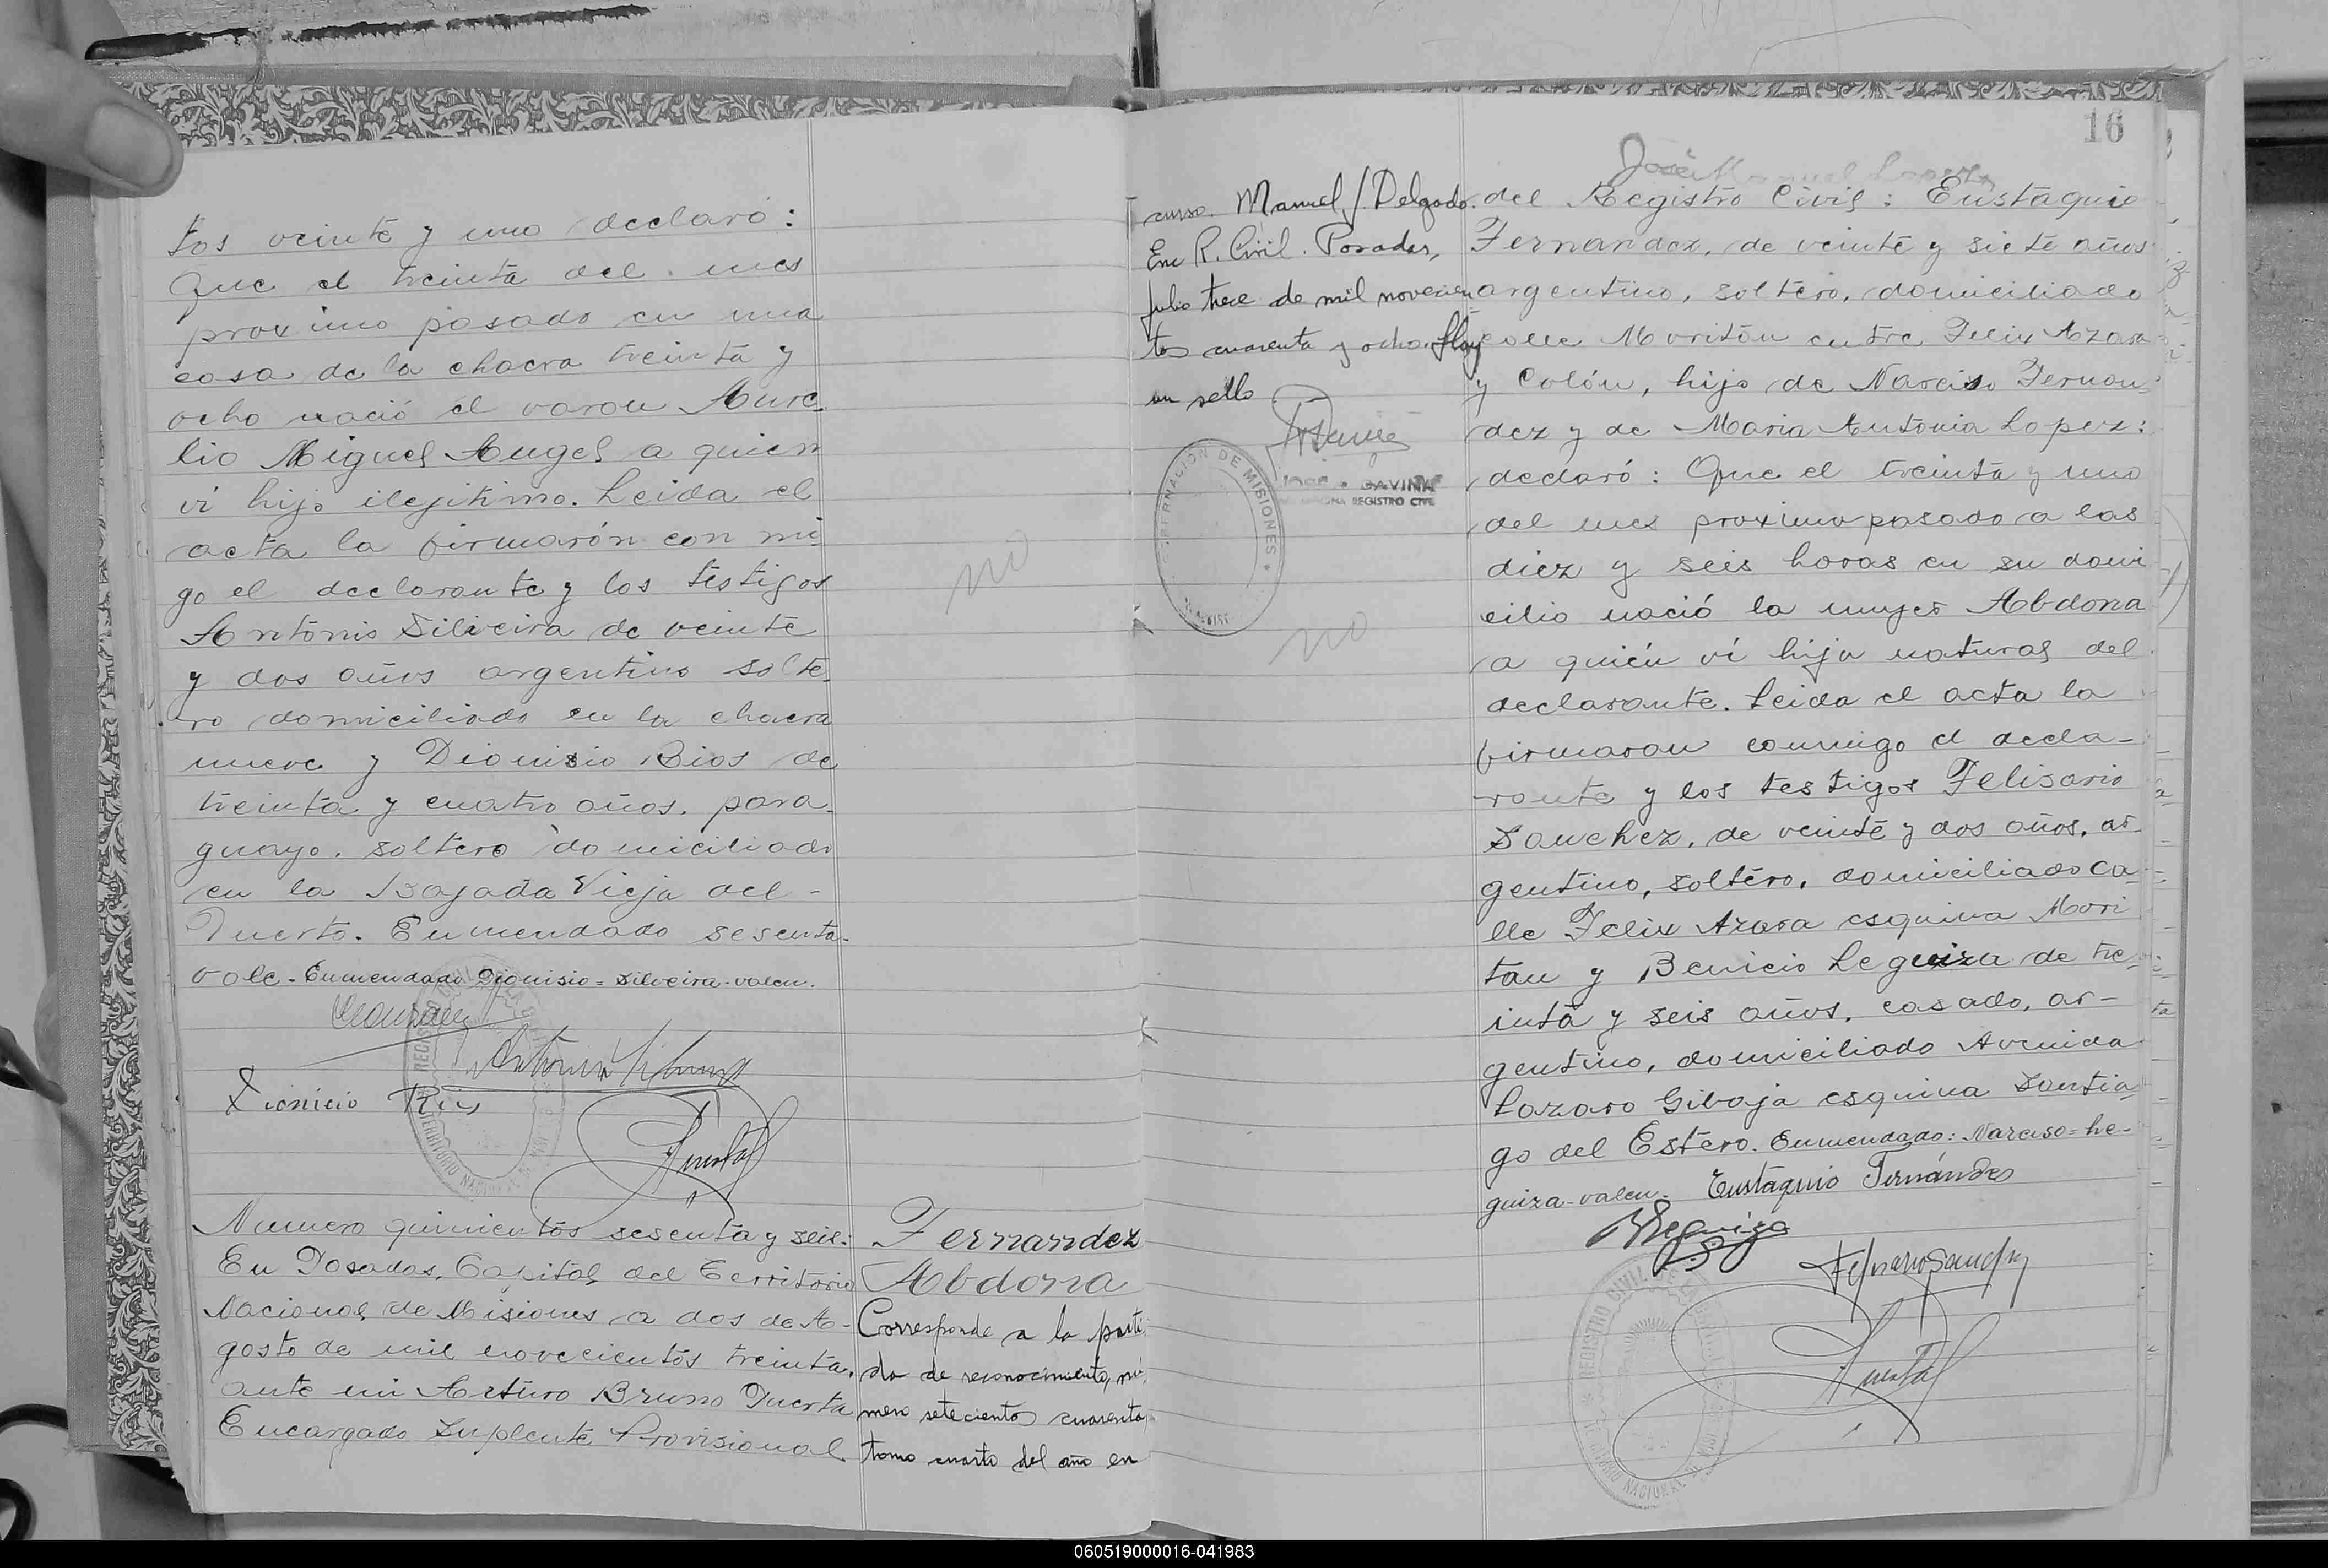 tos veinte y uno declaró:
Que el treinta del mes
proximo pasado en una
casa de la chacra treinta y
ocho nació el varon Aure-
lio Miguel Angel a quien
vi hijo ilejitimo. Leida el
acta la firmarón con mi
go el declarante y los testigos
Antonio Silveira de veinte
y dos años argentino solte
ro domiciliado en la chacra
nueve y Dionisio Rios de
treinta y cuatro años, para-
guayo, soltero domiciliado
en la Bajada Vieja del -
Puerto. Enmendado sesenta-
vale - Enmendado Dionisio = Silveira - valen.
Antonio
Dionicio Rios
no
Numero quinientos sesenta y seis:
En Posadas, Capital del Territorio
Nacional de Misiones a dos de A-
gosto de mil novecientos treinta,
ante mi Arturo Bruno Puerta
Encargado Suplente Provisional
Fernandez
Abdona
Corresponde a la parti
da de reconocimiento, nú
mero setecientos cuarenta,
tomo cuarto del año en
16
José Manuel Lopez
curso. Manuel J. Delgado.
Enc R. Civil. Posadas,
julio trece de mil novecien
tos cuarenta y ocho. Hay
un sello
GOBERNACION DE MISIONES
JOSE GAVIÑA
REGISTRO CIVIL
no
del Registro Civil: Eustaquio
Fernandez, de veinte y siete años
argentino, soltero, domiciliado
calle Moritán entre Felix Azara
y Colón, hijo de Narciso Fernan-
dez y de Maria Antonia Lopez:
declaró: Que el treinta y uno
del mes proximo pasado a las
diez y seis horas en su domi
cilio nació la mujer Abdona
a quién ví hija natural del
declarante. Leida el acta la
firmaron conmigo el decla-
rante y los testigos Felisario
Sanchez, de veinte y dos años, ar-
gentino, soltéro, domiciliado ca-
lle Felix Azara esquina Mori
tan y Benicio Leguiza de tre-
inta y seis años, casado, ar-
gentino, domiciliado Avenida
Lazaro Gibaja esquina Santia-
go del Estero. Enmendado: Narciso = Le-
guiza - valen. Eustaquio Fernández
BLeguiza
REGISTRO CIVIL DE LA
TERRITORIO NACIONAL DE MISIONES